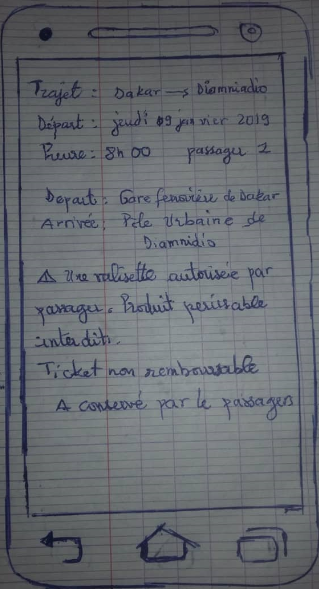 Trajet : Dakar → Diamniadio
Départ : jeudi 09 janvier 2019
Heure : 8h 00 passager 1
Depart : Gare ferrovière de Dakar
Arrivée : Pôle Urbaine de
Diamnidio
⚠ Une valisette autorisée par
passager. Produit périssable
interdit.
Ticket non remboursable
A conservé par le passager